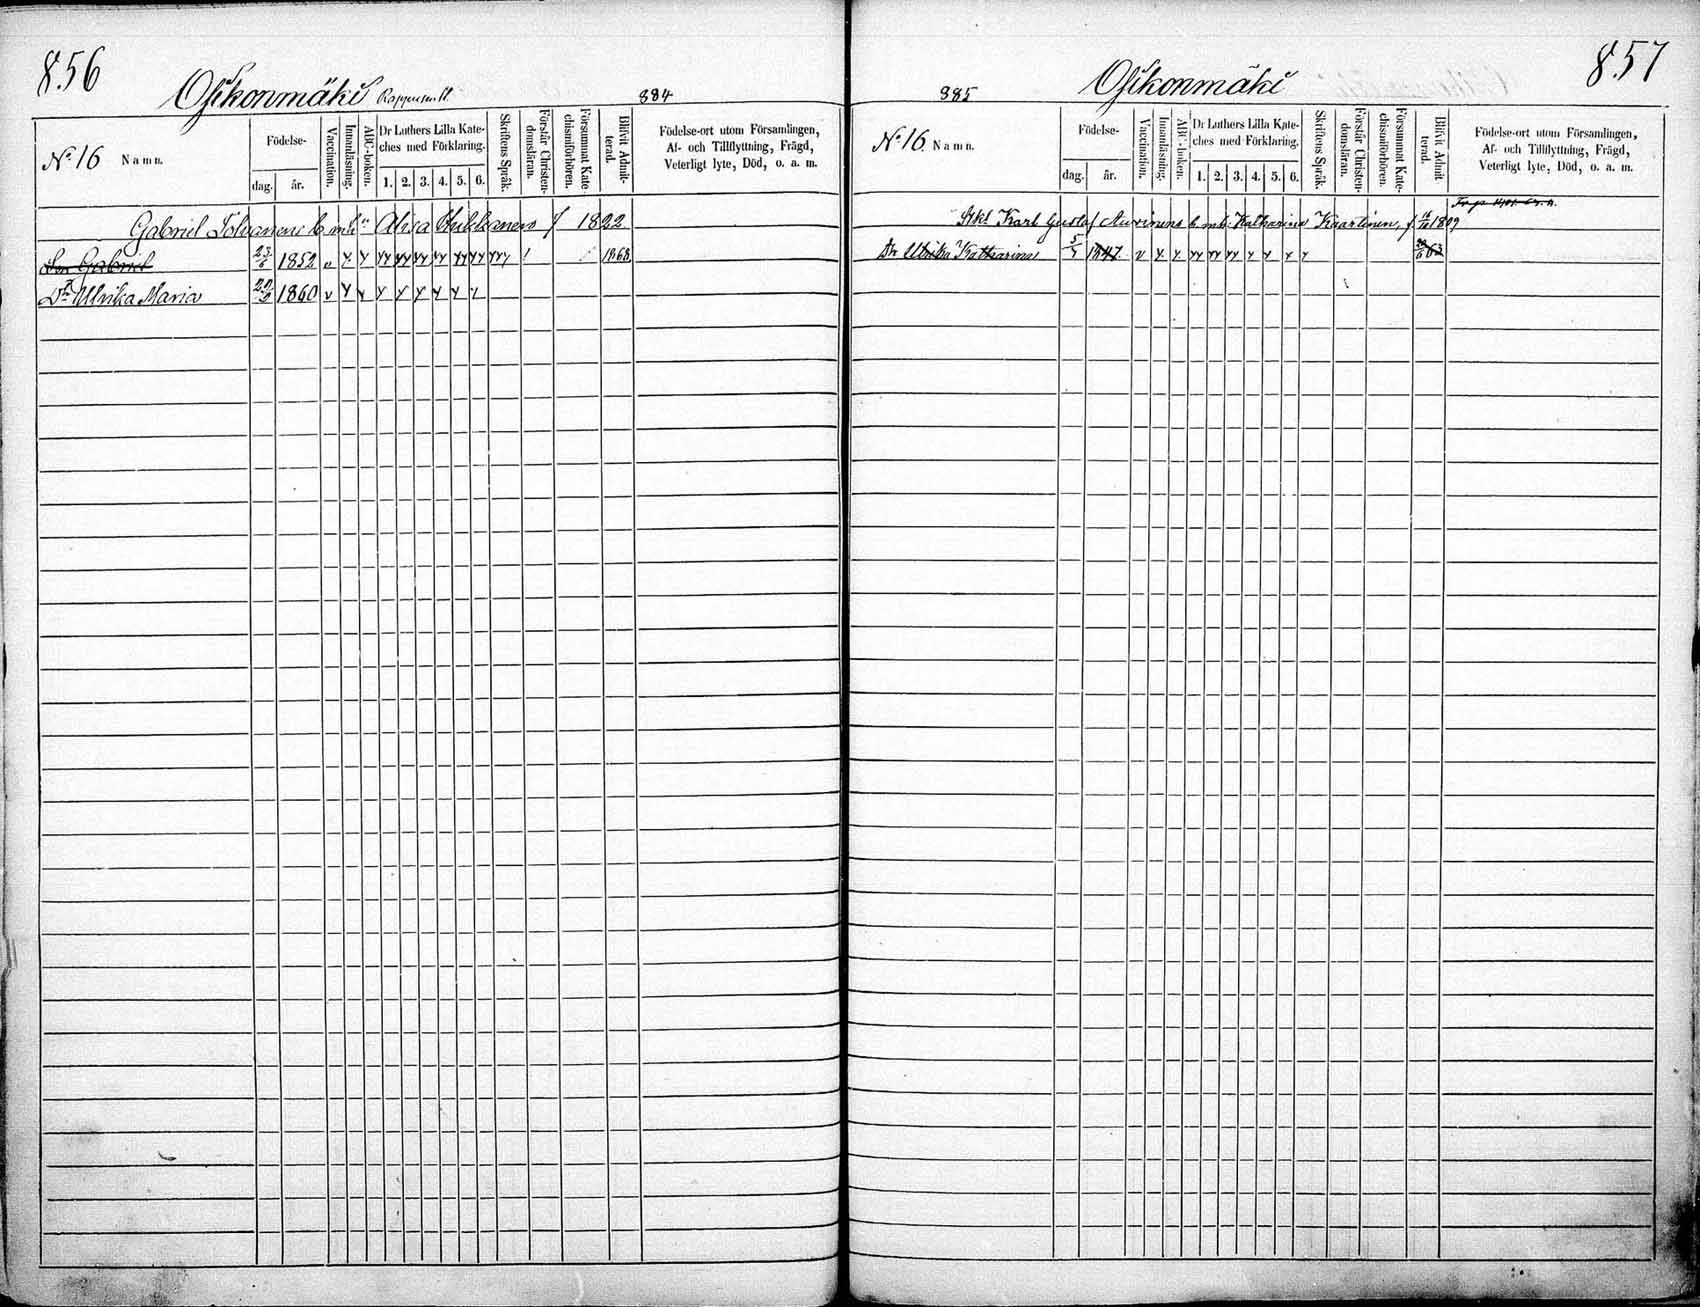 856
Osikonmäki
884
No 16
Namn.
Födelse-
dag. år.
Vaccination.
Innanläsning.
ABC-boken.
Dr Luthers Lilla Kate-
ches med Förklaring.
1. 2. 3. 4. 5. 6.
Skriftens Språk.
Förstår Christen-
domsläran.
Försummat Kate-
chismiförhören.
Blifvit Admit-
terad.
Födelse-ort utom Församlingen,
Af- och Tillflyttning, Frägd,
Veterligt lyte, Död, o. a. m.
Gabriel Tolvanen mh Alisa f 1822
Son Gabriel 23/6 1852 1868
Dr Ulrika Maria 20/2 1860
857
Osikonmäki
885
No 16
Namn.
Födelse-
dag. år.
Vaccination.
Innanläsning.
ABC-boken.
Dr Luthers Lilla Kate-
ches med Förklaring.
1. 2. 3. 4. 5. 6.
Skriftens Språk.
Förstår Christen-
domsläran.
Försummat Kate-
chismiförhören.
Blifvit Admit-
terad.
Födelse-ort utom Församlingen,
Af- och Tillflyttning, Frägd,
Veterligt lyte, Död, o. a. m.
Karl Gustaf Auvinens mh Katharina Kaartinen, f 1809
Dr Ulrika Katharina 1847 63